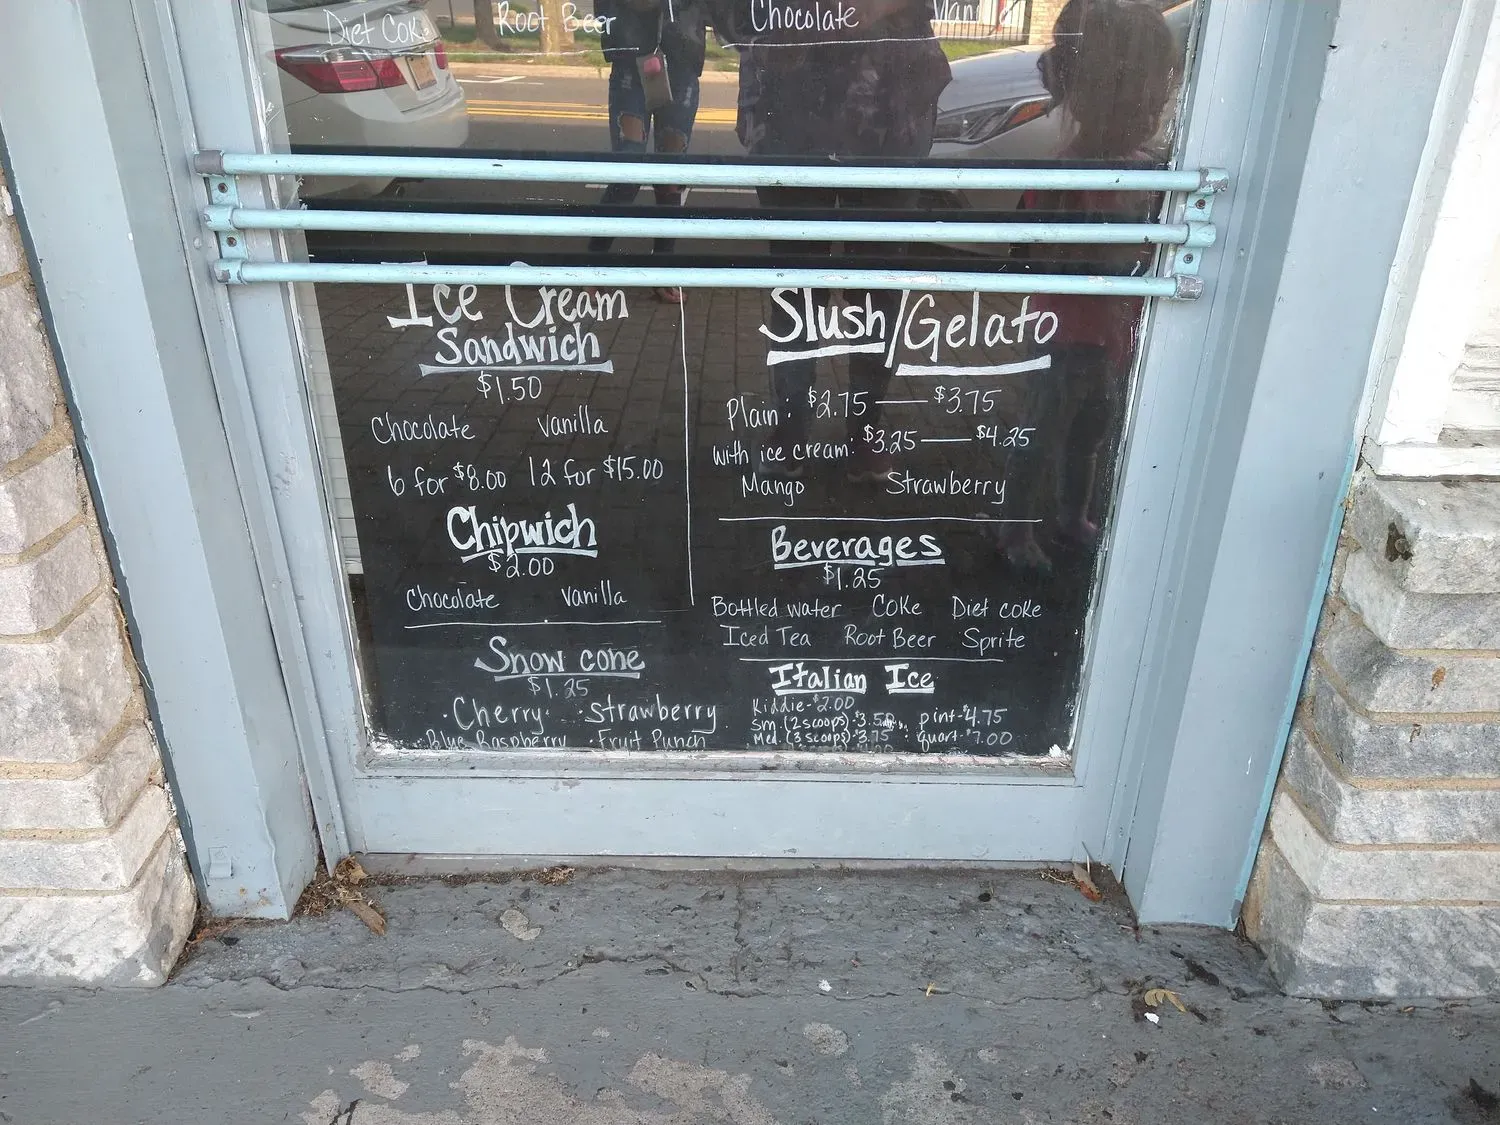 Diet Coke Root Beer
Chocolate Vanilla
Ice Cream
Sandwich
$1.50
Chocolate Vanilla
6 for $8.00 12 for $15.00
Chipwich
$2.00
Chocolate Vanilla
Snow cone
$1.25
· Cherry · Strawberry
· Blue Raspberry · Fruit Punch
Slush/Gelato
Plain: $2.75 — $3.75
with ice cream: $3.25 — $4.25
Mango Strawberry
Beverages
$1.25
Bottled water Coke Diet coke
Iced Tea Root Beer Sprite
Italian Ice
Kiddie-$2.00
Sm. (2 scoops)-$3.50 pint-$4.75
Med. (3 scoops)-$3.75 quart-$7.00